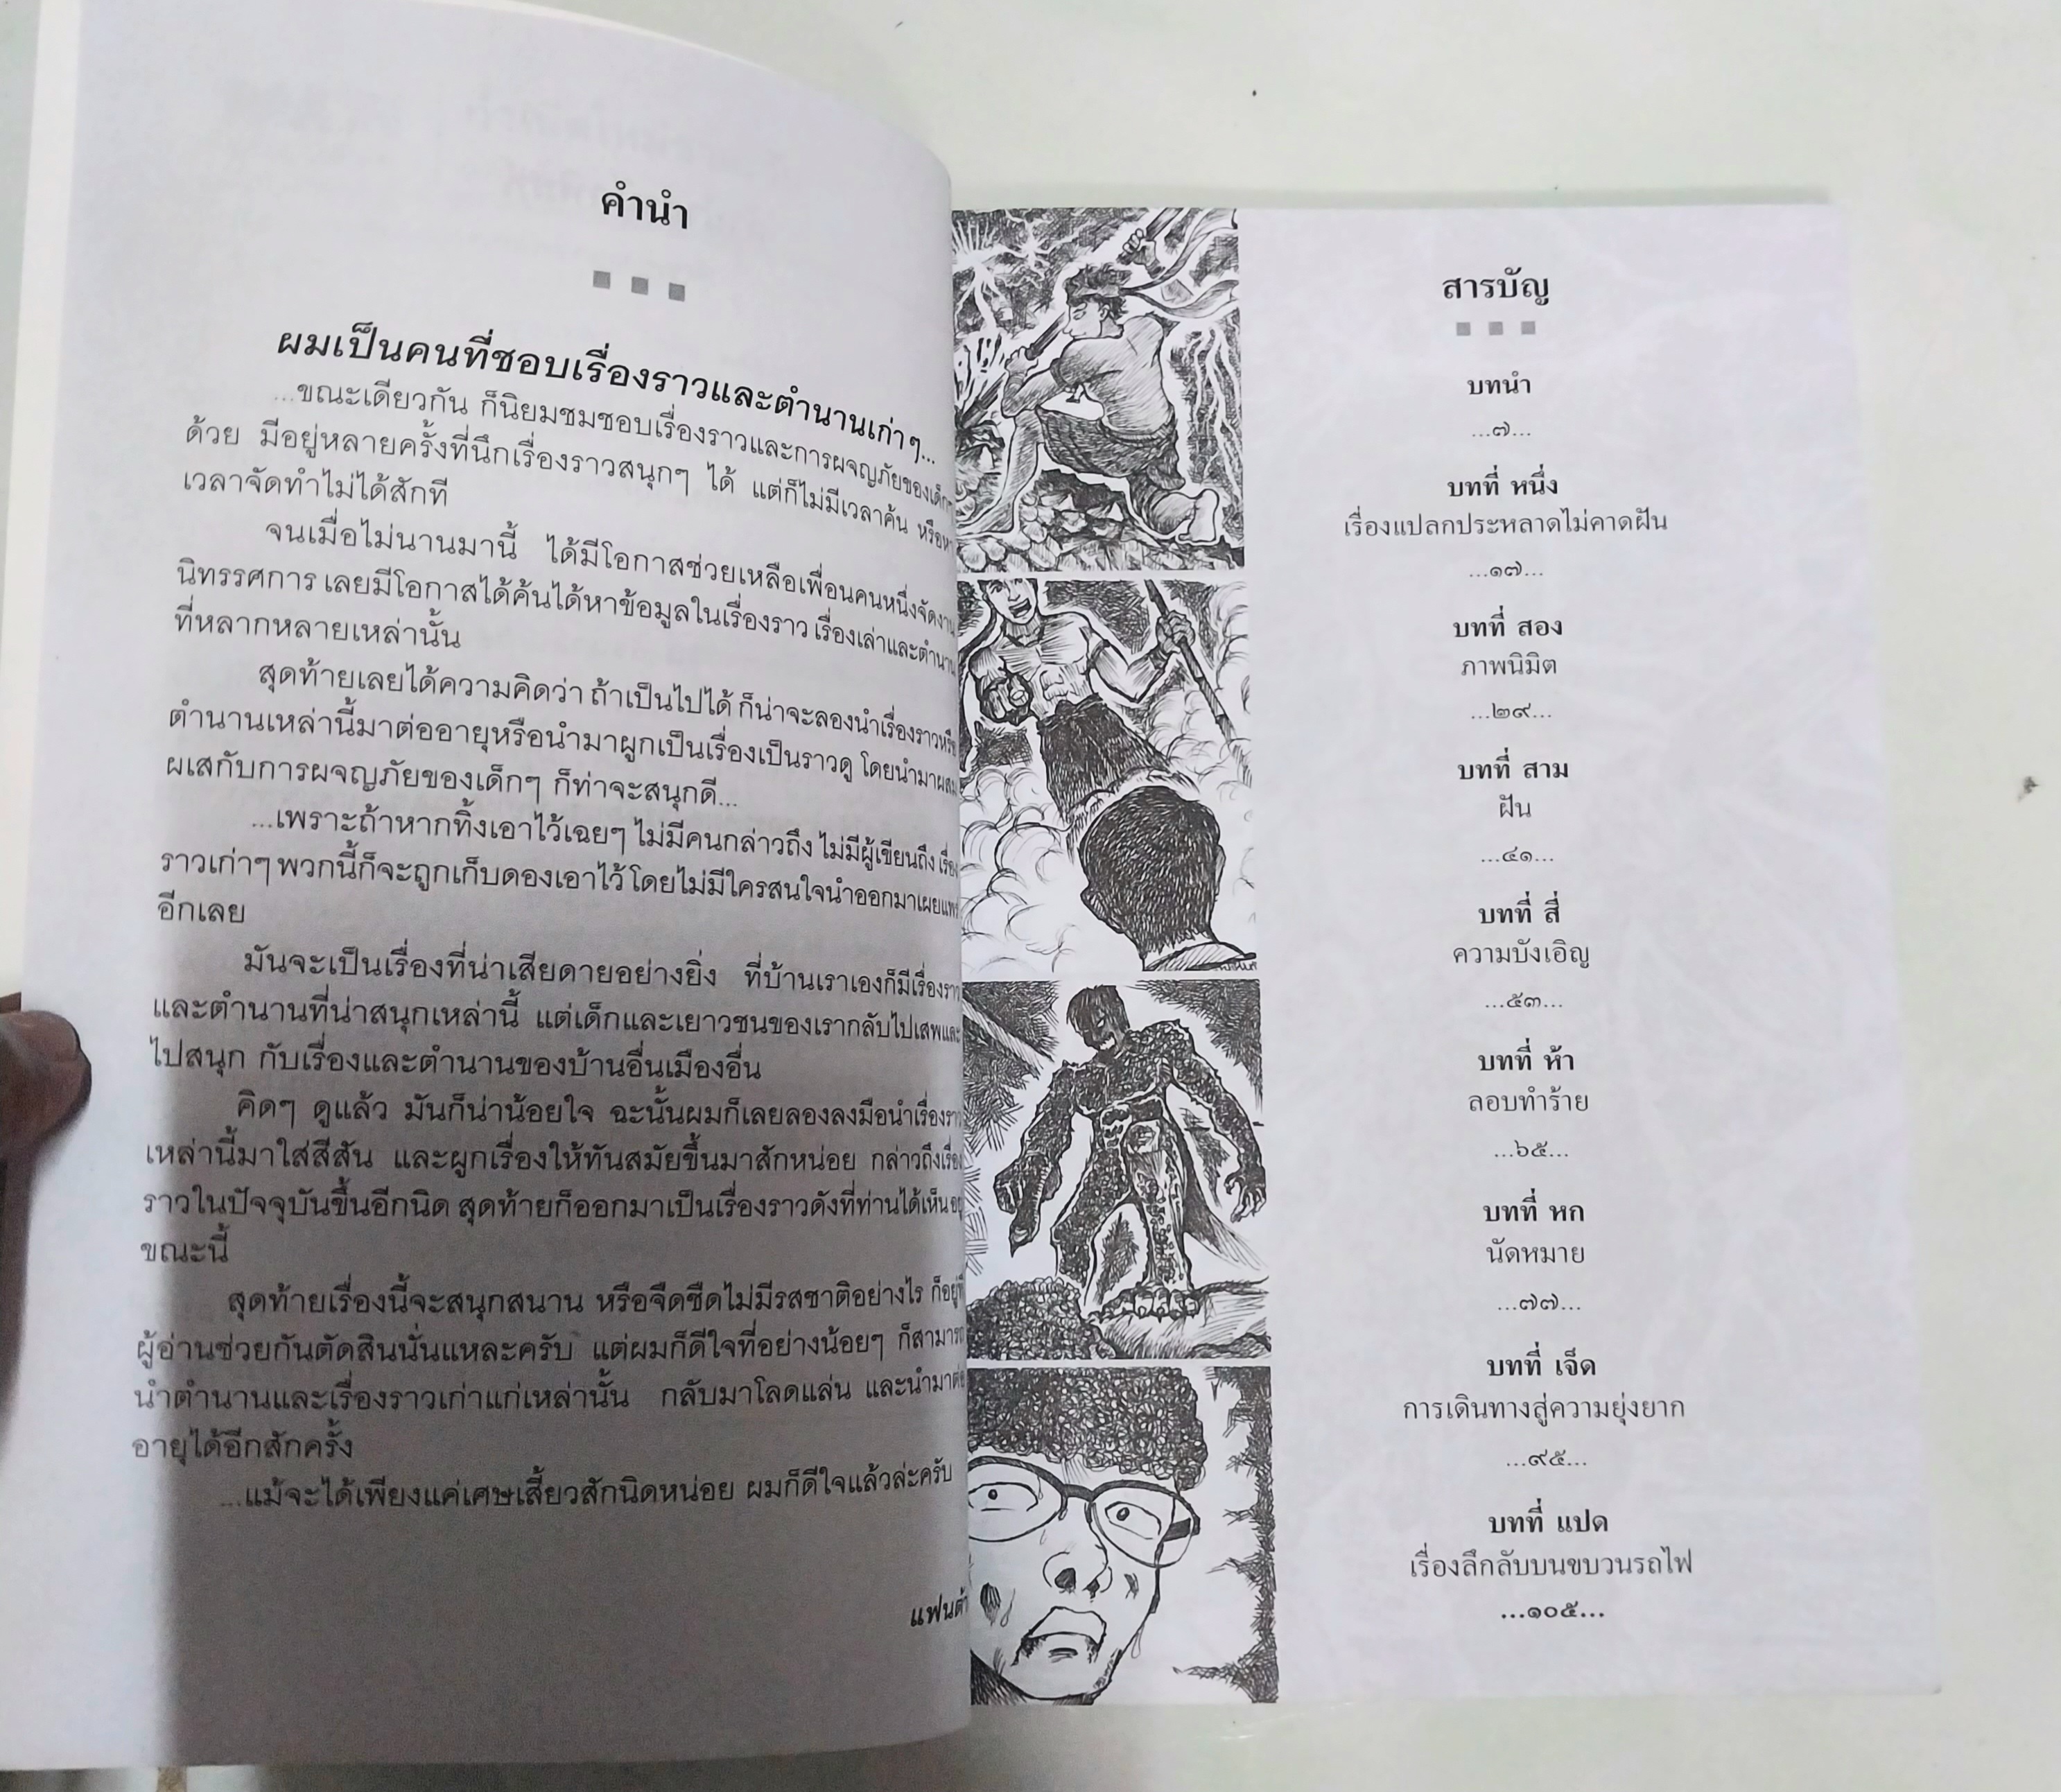 คำนำ
ผมเป็นคนที่ชอบเรื่องราวและตำนานเก่าๆ...
...ขณะเดียวกัน ก็นิยมชมชอบเรื่องราวและการผจญภัยของเด็กๆ
ด้วย มีอยู่หลายครั้งที่นึกเรื่องราวสนุกๆ ได้ แต่ก็ไม่มีเวลาค้น หรือหา
เวลาจัดทำไม่ได้สักที
จนเมื่อไม่นานมานี้ ได้มีโอกาสช่วยเหลือเพื่อนคนหนึ่งจัดงาน
นิทรรศการ เลยมีโอกาสได้ค้นได้หาข้อมูลในเรื่องราว เรื่องเล่าและตำนาน
ที่หลากหลายเหล่านั้น
สุดท้ายเลยได้ความคิดว่า ถ้าเป็นไปได้ ก็น่าจะลองนำเรื่องราวหรือ
ตำนานเหล่านี้มาต่ออายุหรือนำมาผูกเป็นเรื่องเป็นราวดู โดยนำมาผสม
ผเสกับการผจญภัยของเด็กๆ ก็ท่าจะสนุกดี...
...เพราะถ้าหากทิ้งเอาไว้เฉยๆ ไม่มีคนกล่าวถึง ไม่มีผู้เขียนถึง เรื่อง
ราวเก่าๆ พวกนี้ก็จะถูกเก็บดองเอาไว้ โดยไม่มีใครสนใจนำออกมาเผยแพร่
อีกเลย
มันจะเป็นเรื่องที่น่าเสียดายอย่างยิ่ง ที่บ้านเราเองก็มีเรื่องราว
และตำนานที่น่าสนุกเหล่านี้ แต่เด็กและเยาวชนของเรากลับไปเสพและ
ไปสนุก กับเรื่องและตำนานของบ้านอื่นเมืองอื่น
คิดๆ ดูแล้ว มันก็น่าน้อยใจ ฉะนั้นผมก็เลยลองลงมือนำเรื่องราว
เหล่านี้มาใส่สีสัน และผูกเรื่องให้ทันสมัยขึ้นมาสักหน่อย กล่าวถึงเรื่อง
ราวในปัจจุบันขึ้นอีกนิด สุดท้ายก็ออกมาเป็นเรื่องราวดังที่ท่านได้เห็น
ขณะนี้
สุดท้ายเรื่องนี้จะสนุกสนาน หรือจืดชืดไม่มีรสชาติอย่างไร ก็อยู่ที่
ผู้อ่านช่วยกันตัดสินนั่นแหละครับ แต่ผมก็ดีใจที่อย่างน้อยๆ ก็สามารถ
นำตำนานและเรื่องราวเก่าแก่เหล่านั้น กลับมาโลดแล่น และนำมาต่อ
อายุได้อีกสักครั้ง
...แม้จะได้เพียงแค่เศษเสี้ยวสักนิดหน่อย ผมก็ดีใจแล้วล่ะครับ
สารบัญ
บทนำ
...๗...
บทที่ หนึ่ง
เรื่องแปลกประหลาดไม่คาดฝัน
...๑๗...
บทที่ สอง
ภาพนิมิต
...๒๙...
บทที่ สาม
ฝัน
...๔๑...
บทที่ สี่
ความบังเอิญ
...๕๓...
บทที่ ห้า
ลอบทำร้าย
...๖๕...
บทที่ หก
นัดหมาย
...๗๗...
บทที่ เจ็ด
การเดินทางสู่ความยุ่งยาก
...๙๕...
บทที่ แปด
เรื่องลึกลับบนขบวนรถไฟ
...๑๐๕...